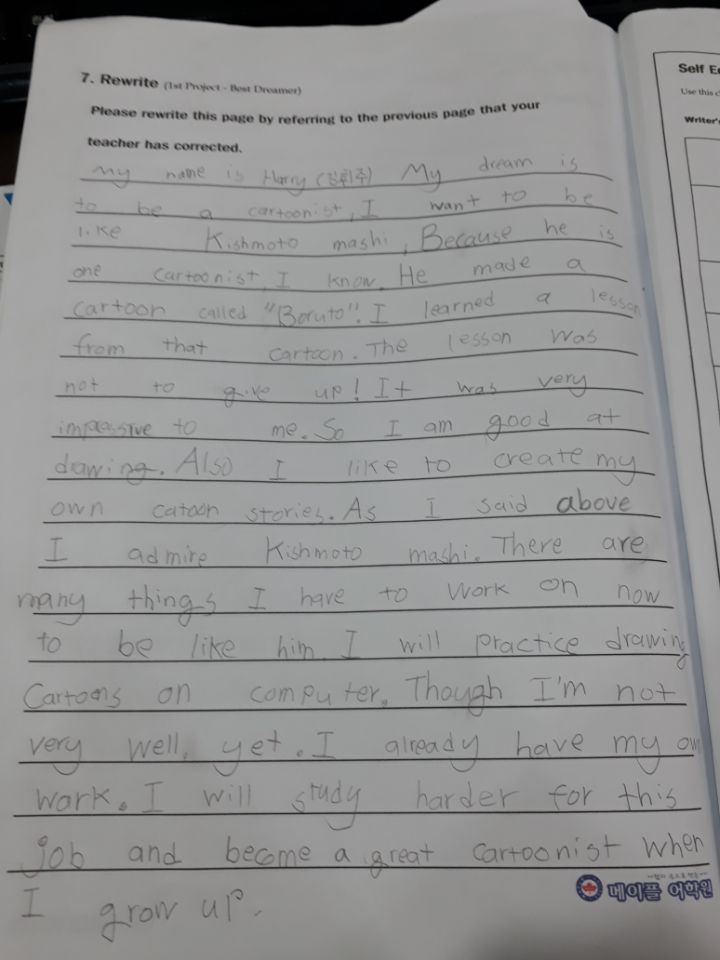 7. Rewrite (1st Project - Best Dreamer)
Please rewrite this page by referring to the previous page that your
teacher has corrected.
My name is Harry (강휘주) My dream is
to be a cartoonist, I want to be
like Kishmoto mashi, Because he is
one cartoonist I know. He made a
cartoon called "Boruto". I learned a lesson
from that cartoon. The lesson was
not to give up! It was very
impassive to me. So I am good at
drawing. Also I like to create my
own catoon stories. As I said above
I admire Kishmoto mashi. There are
many things I have to work on now
to be like him. I will practice drawing
Cartoons on computer. Though I'm not
very well, yet. I already have my own
work. I will study harder for this
job and become a great cartoonist when
I grow up.
메이플 어학원
Self E
Use this c
Writer's